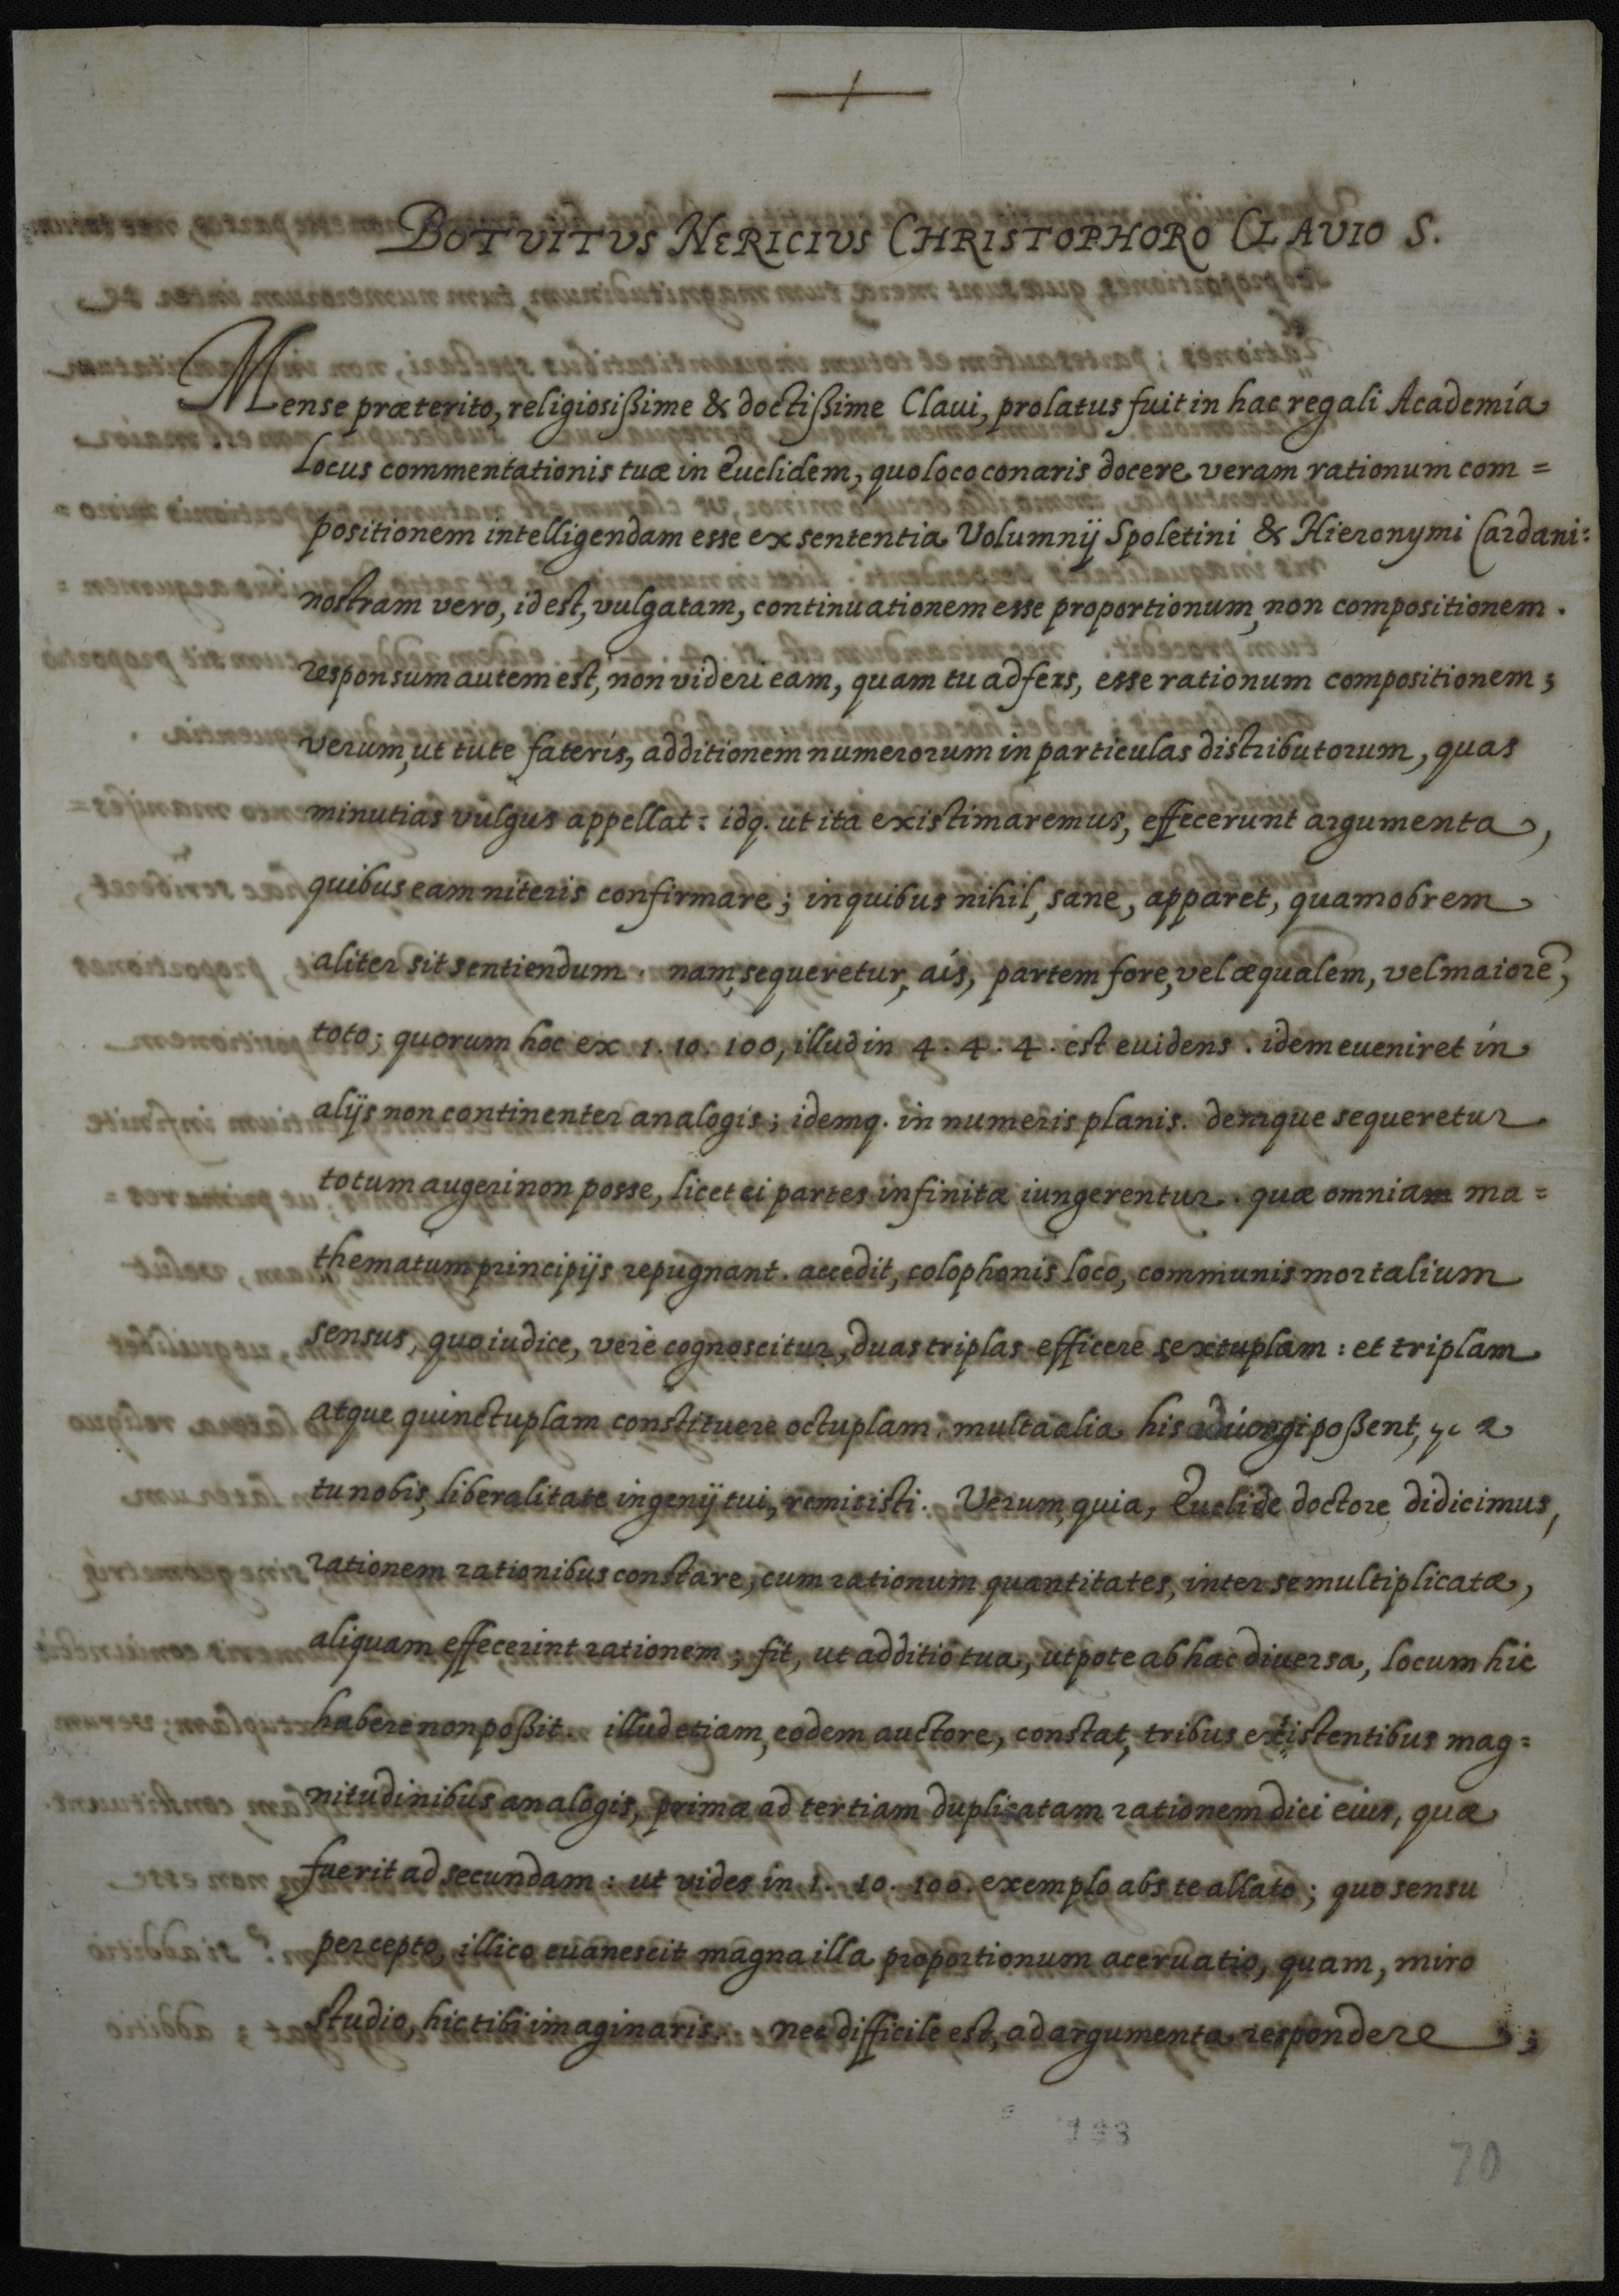 BOTVITVS NERICIVS CHRISTOPHORO CLAVIO S.
Mense præterito, religiosißime & doctißime Claui, prolatus fuit in hac regali Academia
locus commentationis tuæ in Euclidem, quo loco conaris docere veram rationum com=
positionem intelligendam esse ex sententia Volumnij Spoletini & Hieronymi Cardani:
nostram vero, id est, vulgatam, continuationem esse proportionum, non compositionem.
responsum autem est, non videri eam, quam tu adfers, esse rationum compositionem;
verum, ut tute fateris, additionem numerorum in particulas distributorum, quas
minutias vulgus appellat: idq. ut ita existimaremus, effecerunt argumenta,
quibus eam niteris confirmare; in quibus nihil, sane, apparet, quamobrem
aliter sit sentiendum. nam, sequeretur, ais, partem fore, vel æqualem, vel maiorē,
toto; quorum hoc ex 1. 10. 100, illud in 4. 4. 4. est euidens. idem eueniret in
alijs non continenter analogis; idemq. in numeris planis. denique sequeretur
totum augeri non posse, licet ei partes infinitæ iungerentur. quæ omnia ma=
thematum principijs repugnant. accedit, colophonis loco, communis mortalium
sensus, quo iudice, verè cognoscitur, duas triplas efficere sextuplam: et triplam
atque quinctuplam constituere octuplam. multa alia his adiungi poßent,
tu nobis, liberalitate ingenij tui, remisisti. Verum, quia, Euclide doctore didicimus,
rationem rationibus constare, cum rationum quantitates, inter se multiplicatæ,
aliquam effecerint rationem; fit, ut additio tua, utpote ab hac diuersa, locum hic
habere non poßit. illud etiam, eodem auctore, constat, tribus existentibus mag=
nitudinibus analogis, primæ ad tertiam duplicatam rationem dici eius, quæ
fuerit ad secundam: ut vides in 1. 10. 100. exemplo abs te allato; quo sensu
percepto, illico euanescit magna illa proportionum aceruatio, quam, miro
studio, hic tibi imaginaris. nec difficile est, ad argumenta respondere;
70